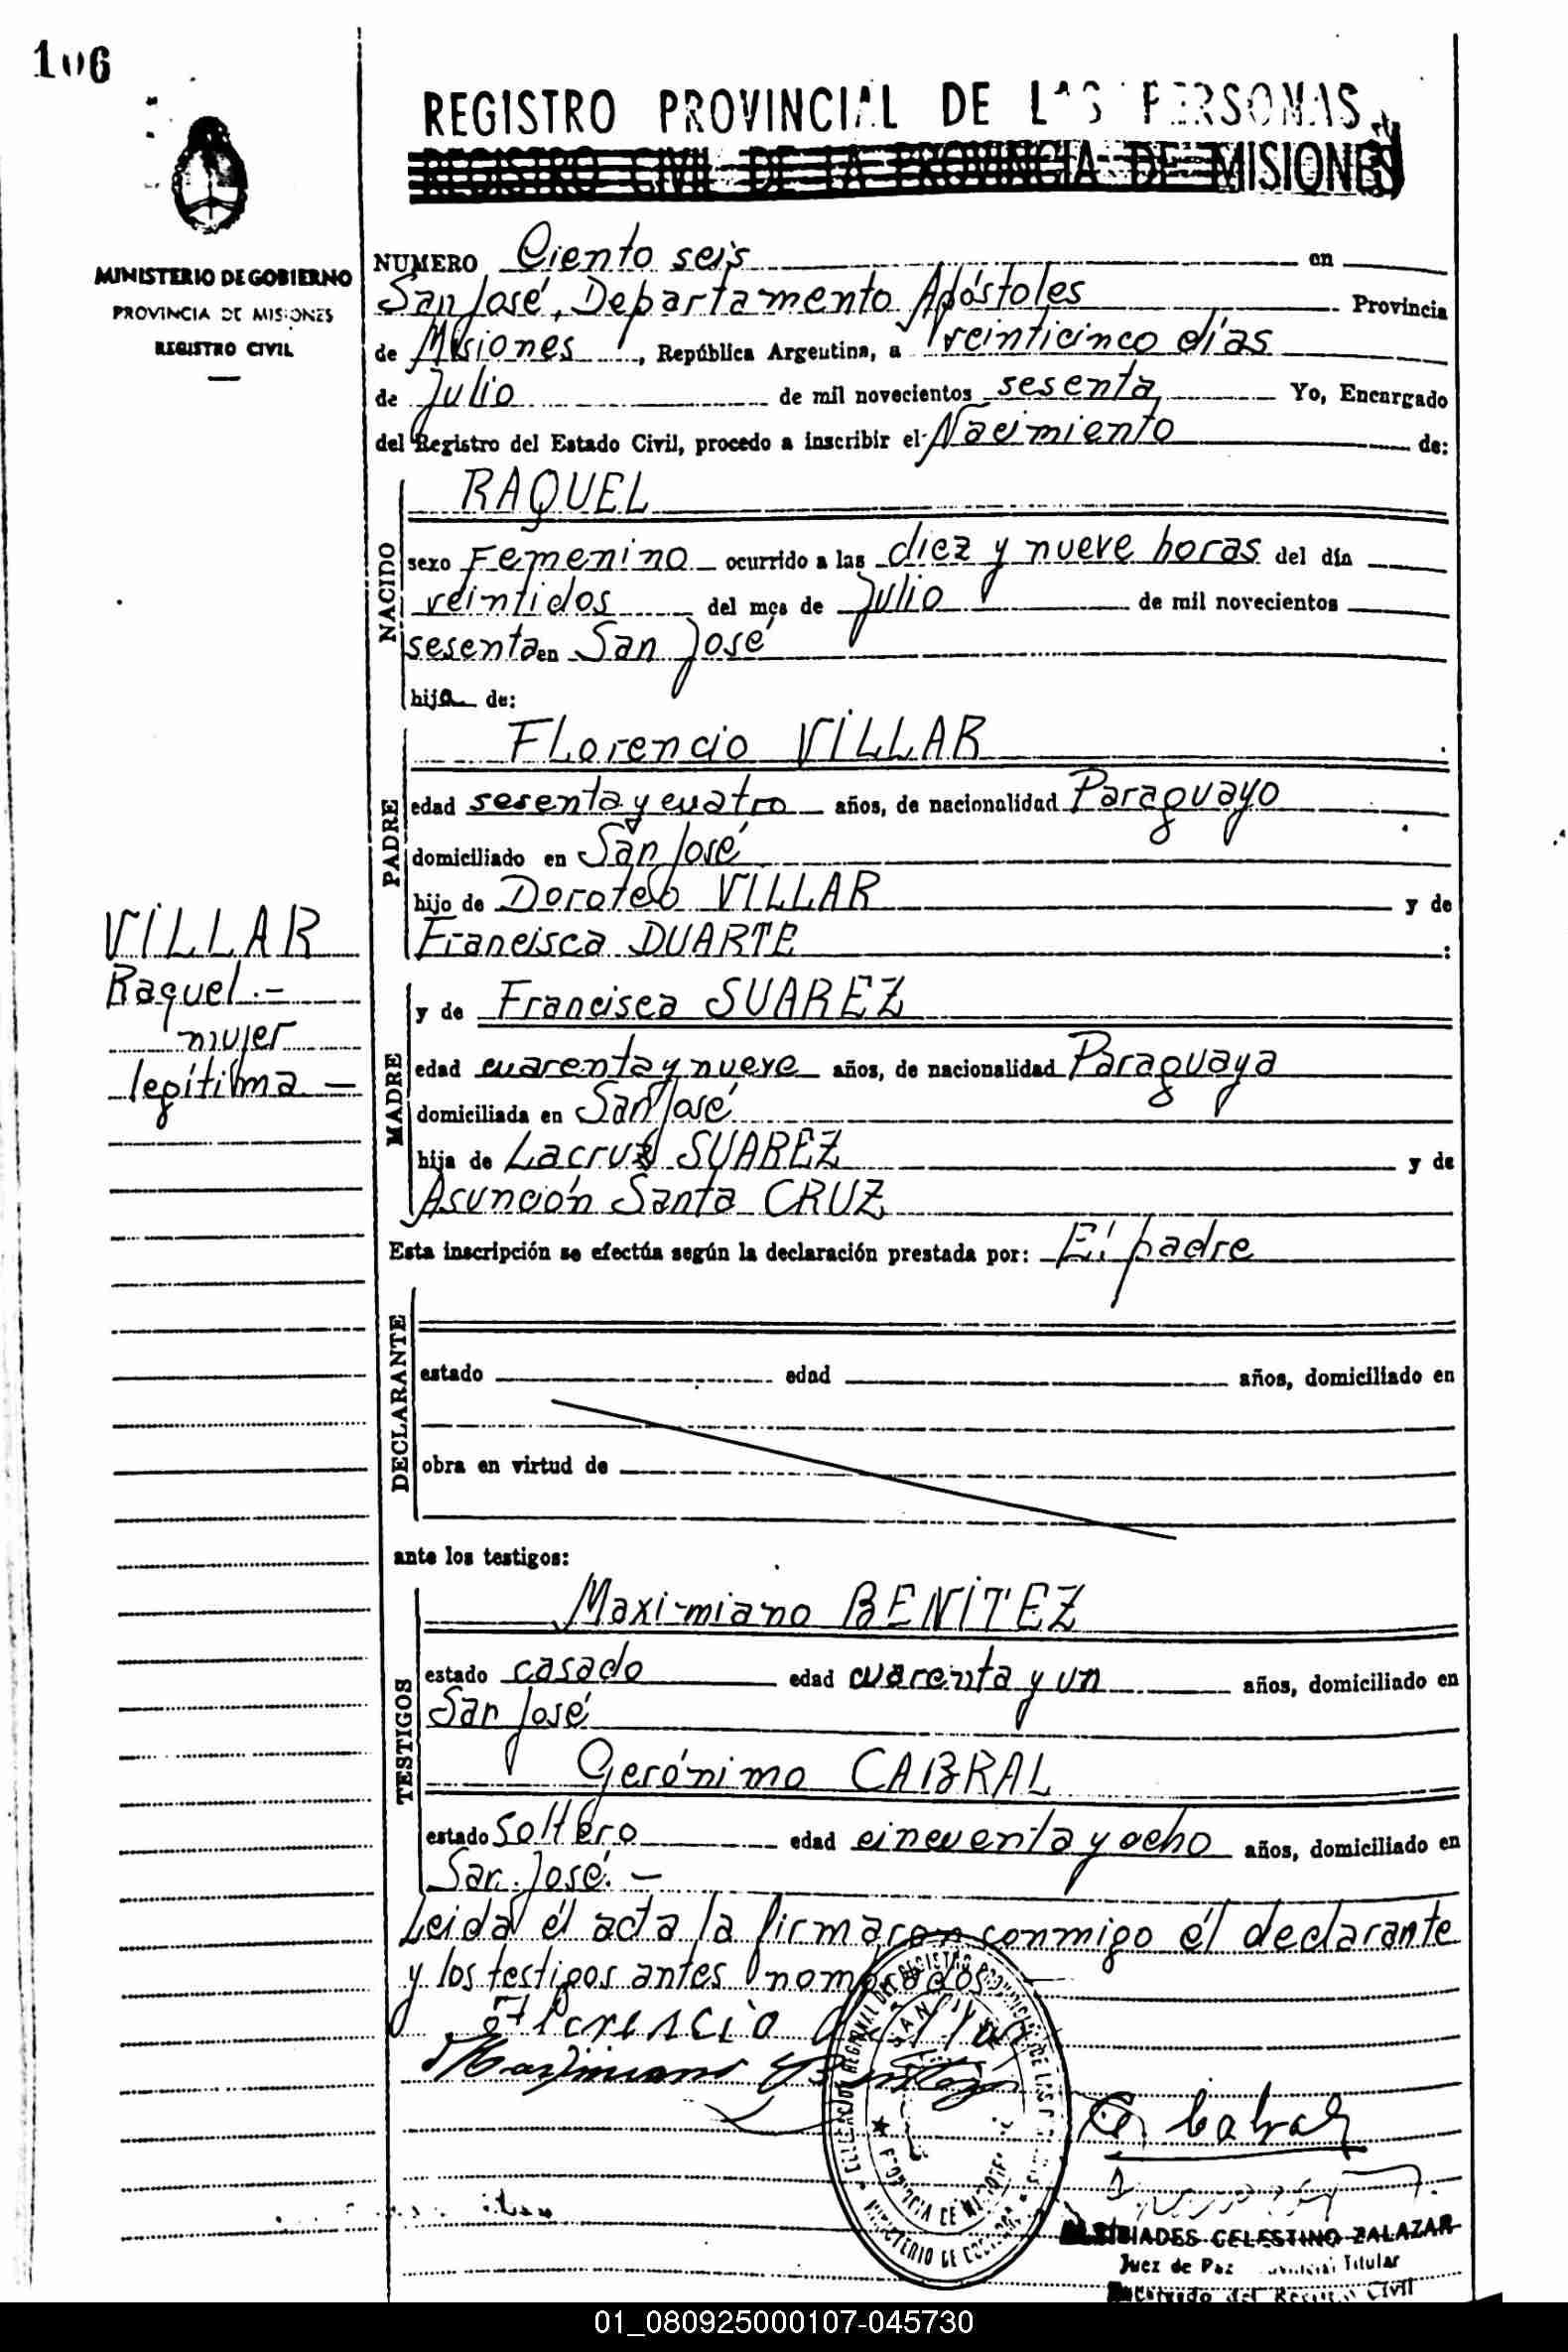 106
REGISTRO PROVINCIAL DE LAS PERSONAS
REGISTRO CIVIL DE LA PROVINCIA DE MISIONES
MINISTERIO DE GOBIERNO
PROVINCIA DE MISIONES
REGISTRO CIVIL
NUMERO Ciento seis en
San José, Departamento Apóstoles Provincia
de Misiones, República Argentina, a veinticinco días
de Julio de mil novecientos sesenta Yo, Encargado
del Registro del Estado Civil, procedo a inscribir el Nacimiento de:
NACIDO
RAQUEL
sexo Femenino ocurrido a las diez y nueve horas del día
veintidos del mes de Julio de mil novecientos
sesenta en San José
hija de:
PADRE
Florencio VILLAR
edad sesenta y cuatro años, de nacionalidad Paraguayo
domiciliado en San José
hijo de Doroteo VILLAR y de
Francisca DUARTE :
VILLAR
Raquel.-
mujer
legítima -
MADRE
y de Francisca SUAREZ
edad cuarenta y nueve años, de nacionalidad Paraguaya
domiciliada en San José
hija de Lacruz SUAREZ y de
Asunción Santa CRUZ
Esta inscripción se efectúa según la declaración prestada por: El padre
DECLARANTE
estado edad años, domiciliado en
obra en virtud de
ante los testigos:
TESTIGOS
Maximiano BENÍTEZ
estado casado edad cuarenta y un años, domiciliado en
San José
Gerónimo CABRAL
estado soltero edad cincuenta y ocho años, domiciliado en
San José. -
Leida él acta la firmaron conmigo él declarante
y los testigos antes nombrados
Maximiano Benitez
G. Cabral
CELESTINO ZALAZAR
Juez de Paz Titular
Encargado del Registro Civil
DELEGACION REGIONAL DEL REGISTRO PROVINCIAL DE LAS
SAN JOSE
PROVINCIA DE MISIONES
MINISTERIO DE GOBIERNO
01_080925000107-045730